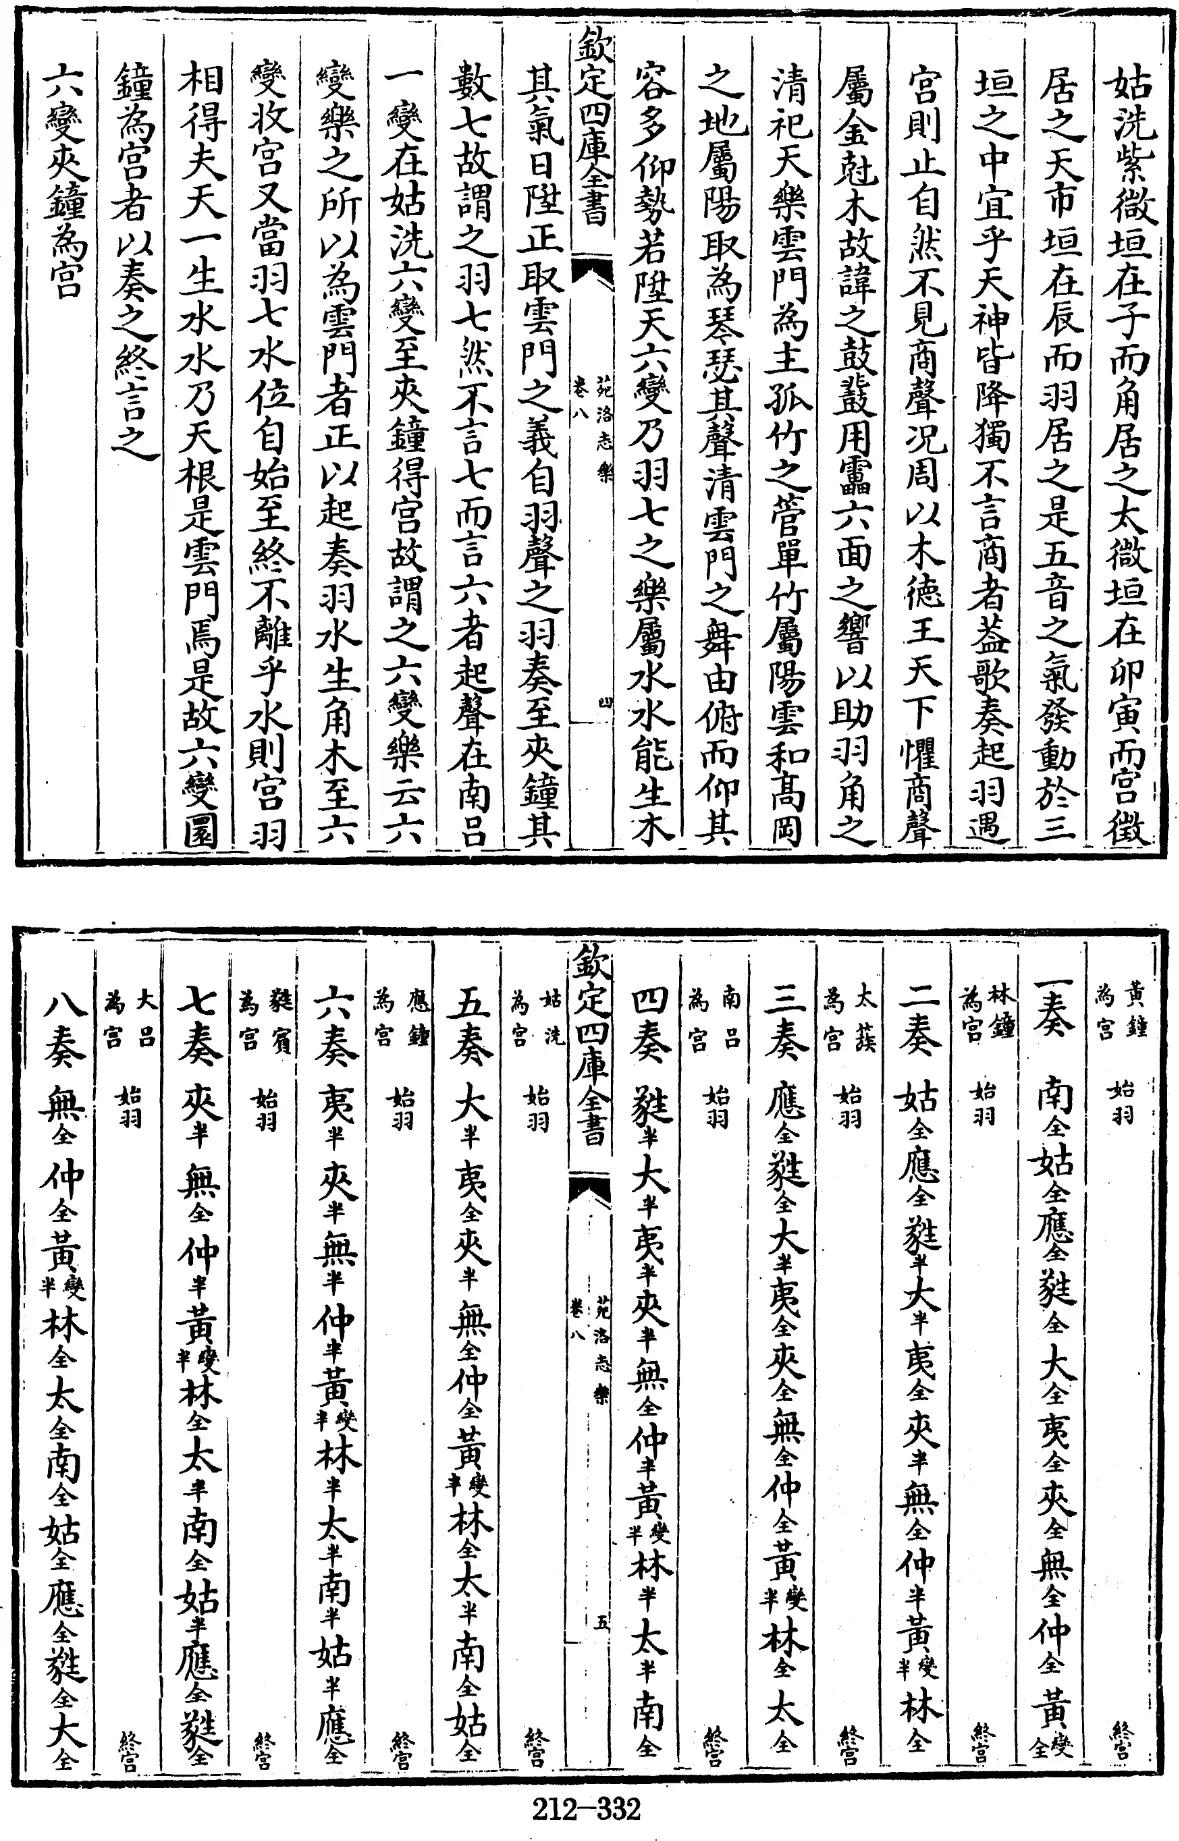 姑洗紫微垣在子而角居之太微垣在卯寅而宫徵
居之天市垣在辰而羽居之是五音之氣發動於三
垣之中宜乎天神皆降獨不言商者葢歌奏起羽遇
宫則止自然不見商聲况周以木徳王天下懼商聲
屬金尅木故諱之鼓鼗用靁六面之響以助羽角之
清祀天樂雲門為主孤竹之管單竹屬陽雲和髙岡
之地屬陽取為琴瑟其聲清雲門之舞由俯而仰其
容多仰勢若陞天六變乃羽七之樂屬水水能生木
欽定四庫全書
苑洛志樂
卷八
四
其氣日陞正取雲門之義自羽聲之羽奏至夾鐘其
數七故謂之羽七然不言七而言六者起聲在南吕
一變在姑洗六變至夾鐘得宫故謂之六變樂云六
變樂之所以為雲門者正以起奏羽水生角木至六
變收宫又當羽七水位自始至終不離乎水則宫羽
相得夫天一生水水乃天根是雲門焉是故六變圜
鐘為宫者以奏之終言之
六變夾鐘為宫
黃鐘為宫 始羽 終宫
一奏 南全姑全應全蕤全大全夷全夾全無全仲全黃變全
林鐘為宫 始羽 終宫
二奏 姑全應全蕤半大半夷全夾半無全仲半黃變半林全
太蔟為宫 始羽 終宫
三奏 應全蕤全大半夷全夾全無全仲全黃變半林全太全
南吕為宫 始羽 終宫
四奏 蕤半大半夷半夾半無全仲半黃變半林半太半南全
欽定四庫全書
苑洛志樂
卷八
五
姑洗為宫 始羽 終宫
五奏 大半夷全夾半無全仲全黃變半林全太半南全姑全
應鐘為宫 始羽 終宫
六奏 夷半夾半無半仲半黃變半林半太半南半姑半應全
蕤賓為宫 始羽 終宫
七奏 夾半無全仲半黃變半林全太半南全姑半應全蕤全
大吕為宫 始羽 終宫
八奏 無全仲全黃變半林全太全南全姑全應全蕤全大全
212-332